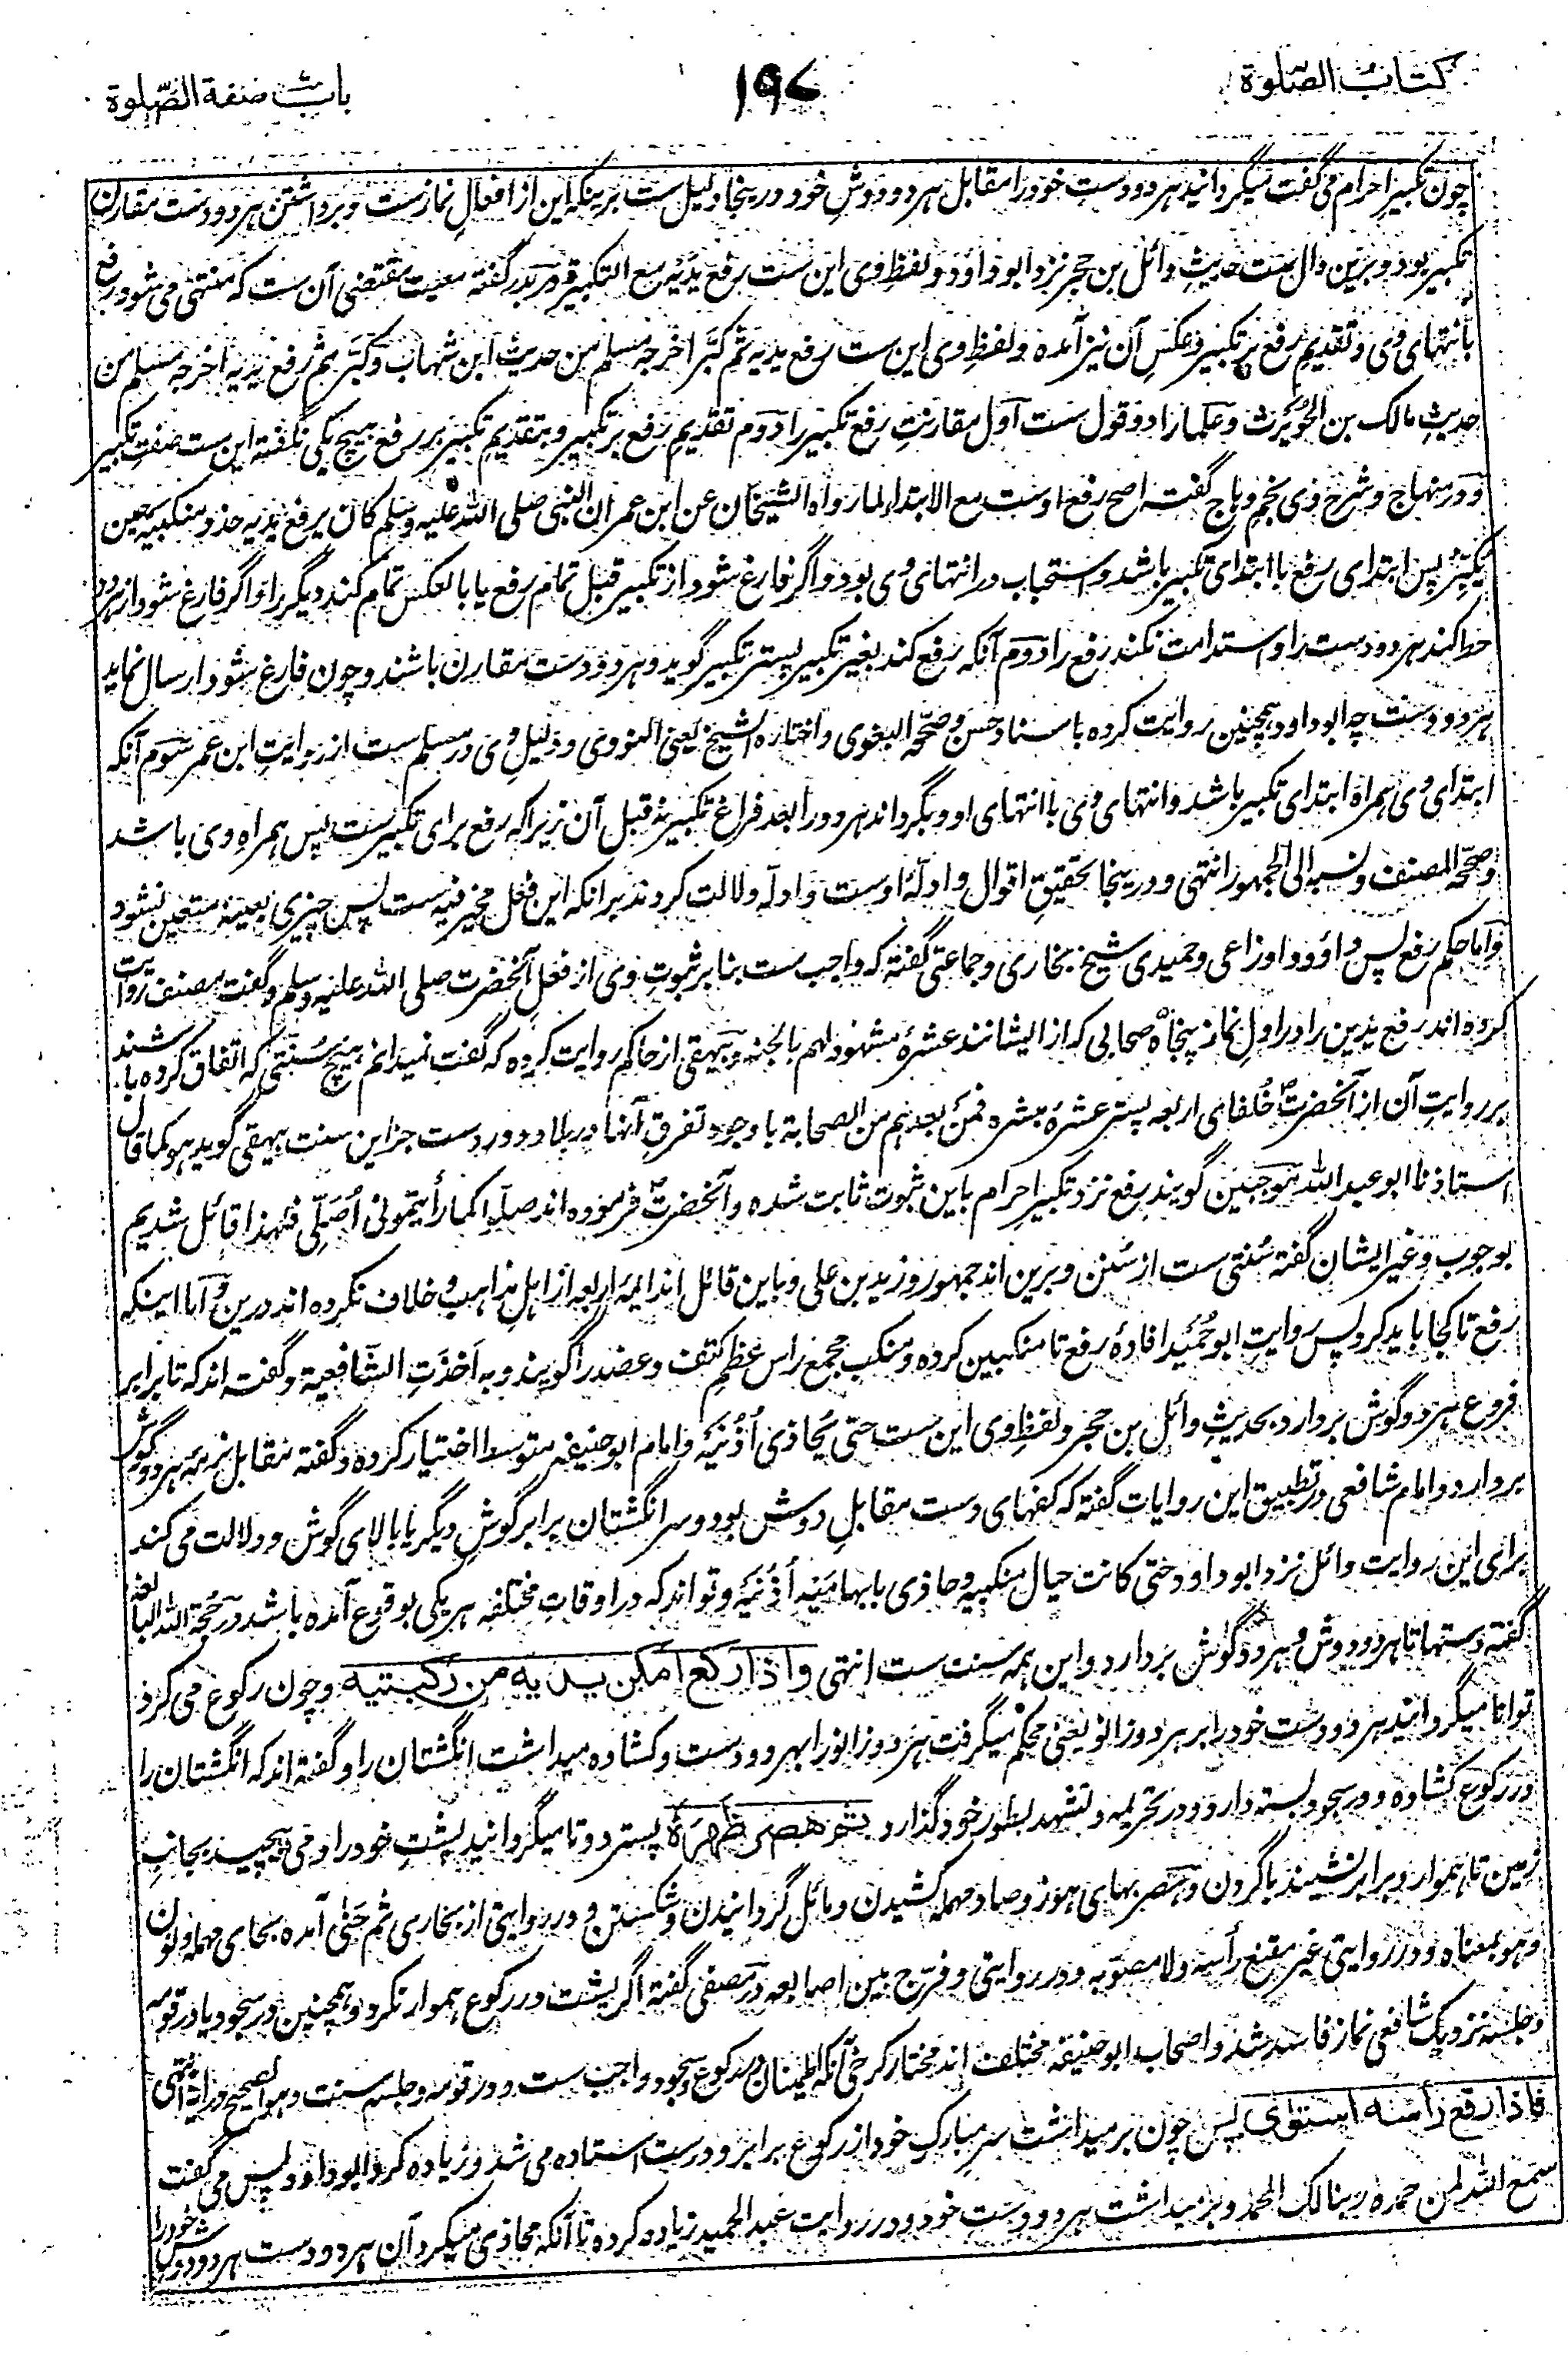 کتاب الصّلوة
۱۹۷
باب صفة الصّلوة
چون تکبیر احرام می گفت میگردانید هر دو دست خود را مقابل هر دو دوش خود و درینجا دلیل ست برینکه این از افعال نمازست و برداشتن هر دو دست مقارن
تکبیر بود و برین دال ست حدیث وائل بن حجر نزد ابو داؤد و لفظ وی این ست رفع یدیه مع التکبیر و در بدر گفته معیت مقتضی آن ست که منتهی می شود رفع
بانتهای وی و تقدیم رفع بر تکبیر و عکس آن نیز آمده و لفظ وی این ست رفع یدیه ثم کبّر اخرجه مسلم من حدیث ابن شهاب و کبّر ثم رفع یدیه اخرجه مسلم من
حدیث مالک بن الحویرث و علما را دو قول ست اول مقارنت رفع تکبیر را دوم تقدیم رفع بر تکبیر و بتقدیم تکبیر بر رفع هیچ یکی نگفته این ست صفت تکبیر
و در منهاج و شرح وی نجم وهاج گفته اصح رفع اوست مع الابتداء لما رواه الشیخان عن ابن عمر ان النبی صلی الله علیه وسلم کان یرفع یدیه حذو منکبیه حین
یکبّر پس ابتدای رفع با ابتدای تکبیر باشد و استحباب در انتهای وی بود و اگر فارغ شود از تکبیر قبل تمام رفع یا بالعکس تمام کند دیگر را و اگر فارغ شود از هر دو
حط کند هر دو دست را و استدامت نکند رفع را دوم آنکه رفع کند بغیر تکبیر پستر تکبیر گوید و هر دو دست مقارن باشند و چون فارغ شود ارسال نماید
هر دو دست چه ابو داود همچنین روایت کرده باسناد حسن و صحّحه البغوی و اختاره الشیخ یعنی النووی و دلیل وی در مسلم ست از روایت ابن عمر سوم آنکه
ابتدای وی همراه ابتدای تکبیر باشد و انتهای وی با انتهای او و بگرداند هر دو را بعد فراغ تکبیر نه قبل آن زیراکه رفع برای تکبیرست پس همراه وی باشد
و صحّحه المصنف و نسبه الی الجمهور انتهی و درینجا تحقیق اقوال و ادلّهٔ اوست و ادلّه دلالت کردند برانکه این فعل مخیّر فیه ست پس چیزی بعینه متعین نشود
و اما حکم رفع پس داؤد و اوزاعی و حمیدی شیخ بخاری و جماعتی گفته که واجب ست بنابر ثبوت وی از فعل آنحضرت صلی الله علیه وسلم و گفت مصنف روایت
کرده اند رفع یدین را در اول نماز پنجاه صحابی که از ایشانند عشرهٔ مشهود لهم بالجنه و بیهقی از حاکم روایت کرده که گفت نمیدانم هیچ سنتی که اتفاق کرده باشند
بر روایت آن از آنحضرت ؐ خلفای اربعه پستر عشرهٔ مبشره فمن بعدهم من الصحابة با وجود تفرق آنها در بلاد دور دست جز این سنت بیهقی گوید هو کما قال
استاذنا ابو عبد الله موجبین گویند رفع نزد تکبیر احرام باین ثبوت ثابت شده و آنحضرت ؐ فرموده اند صلّوا کما رأیتمونی اُصَلّی فلهذا قائل شدیم
بوجوب و غیر ایشان گفته سُنتی ست از سُنن و برین اند جمهور و زید بن علی و باین قائل اند ایمهٔ اربعه از اهل مذاهب و خلاف نکرده اند درین و اما اینکه
رفع تا کجا باید کرد پس روایت ابو حُمَید افادهٔ رفع تا منکبین کرده و منکب مجمع راس عظم کتف و عضد را گویند و به اَخَذَتِ الشّافعیة و گفته اند که تا برابر
فروع هر دو گوش بردارد بحدیث وائل بن حجر و لفظ وی این ست حتی یُحاذی اُذُنَیه و امام ابو حنیفه متوسط اختیار کرده و گفته مقابل نرمهٔ هر دو گوش
بردارد و امام شافعی در تطبیق این روایات گفته که کفهای دست مقابل دوش بود و سر انگشتان برابر گوش دیگر یا بالای گوش و دلالت می کند
برای این روایت وائل نزد ابو داود حتی کانت حیال منکبیه و حاذی بابهامیه اُذُنیه و تواند که در اوقات مختلفه هر یکی بوقوع آمده باشد در حجة الله البالغه
گفته دستها تا هر دو دوش و هر دو گوش بردارد و این همه سنت ست انتهی و اذا رکع امکن یدیه من رکبتیه و چون رکوع می کرد
توانا میگردانید هر دو دست خود را بر هر دو زانو یعنی محکم میگرفت هر دو زانو را بهر دو دست و کشاده میداشت انگشتان را و گفته اند که انگشتان را
در رکوع کشاده و در سجود بسته دارد و در تحریمه و تشهد بطور خود گذارد ثم هصر ظهرهٔ پستر دو تا میگردانید پشت خود را و می پیچید بجانب
زمین تا هموار و برابر نشیند با گردن و هصر بهای هوز و صاد مهمله کشیدن و مائل گردانیدن و شکستن و در روایتی از بخاری ثم حَنیٰ آمده بحای مهمله و نون
و هو بمعناه و در روایتی غیر مقنع رأسه ولا مصوّبه و در روایتی و فرّج بین اصابعه در مصفی گفته اگر پشت در رکوع هموار نکرد و همچنین در سجود یا در قومه
و جلسه نزدیک شافعی نماز فاسد شد و اصحاب ابو حنیفه مختلف اند مختار کرخی آنکه اطمینان در رکوع و سجود واجب ست و در قومه و جلسه سنت و هو الصحیح درایة انتهی
فاذا رفع رأسه استوٰی پس چون بر میداشت سر مبارک خود از رکوع برابر و درست استاده می شد و زیاده کرد ابو داود پس می گفت
سمع الله لمن حمده ربنا لک الحمد و بر میداشت هر دو دست خود و در روایت عبد الحمید زیاده کرده تا آنکه محاذی میکرد آن هر دو دست هر دو دوش خود را